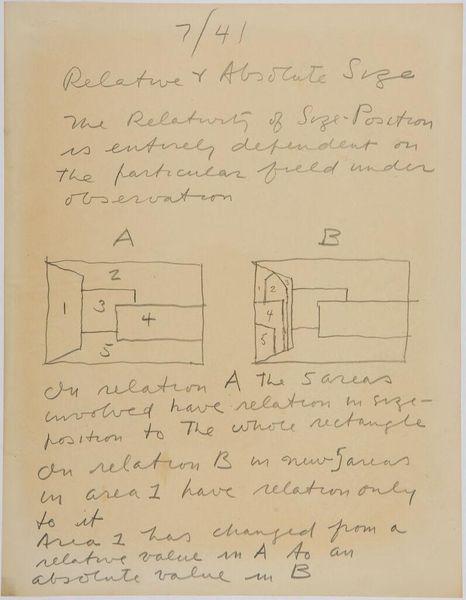 7/41
Relative & Absolute Size
The Relativity of Size-Position
is entirely dependent on
the particular field under
observation
A B
1 2 3 4 5
1 2 3 4 5
In relation A the 5 areas
involved have relation in size-
position to the whole rectangle
In relation B in new 5 areas
in area 1 have relation only
to it
Area 1 has changed from a
relative value in A to an
absolute value in B